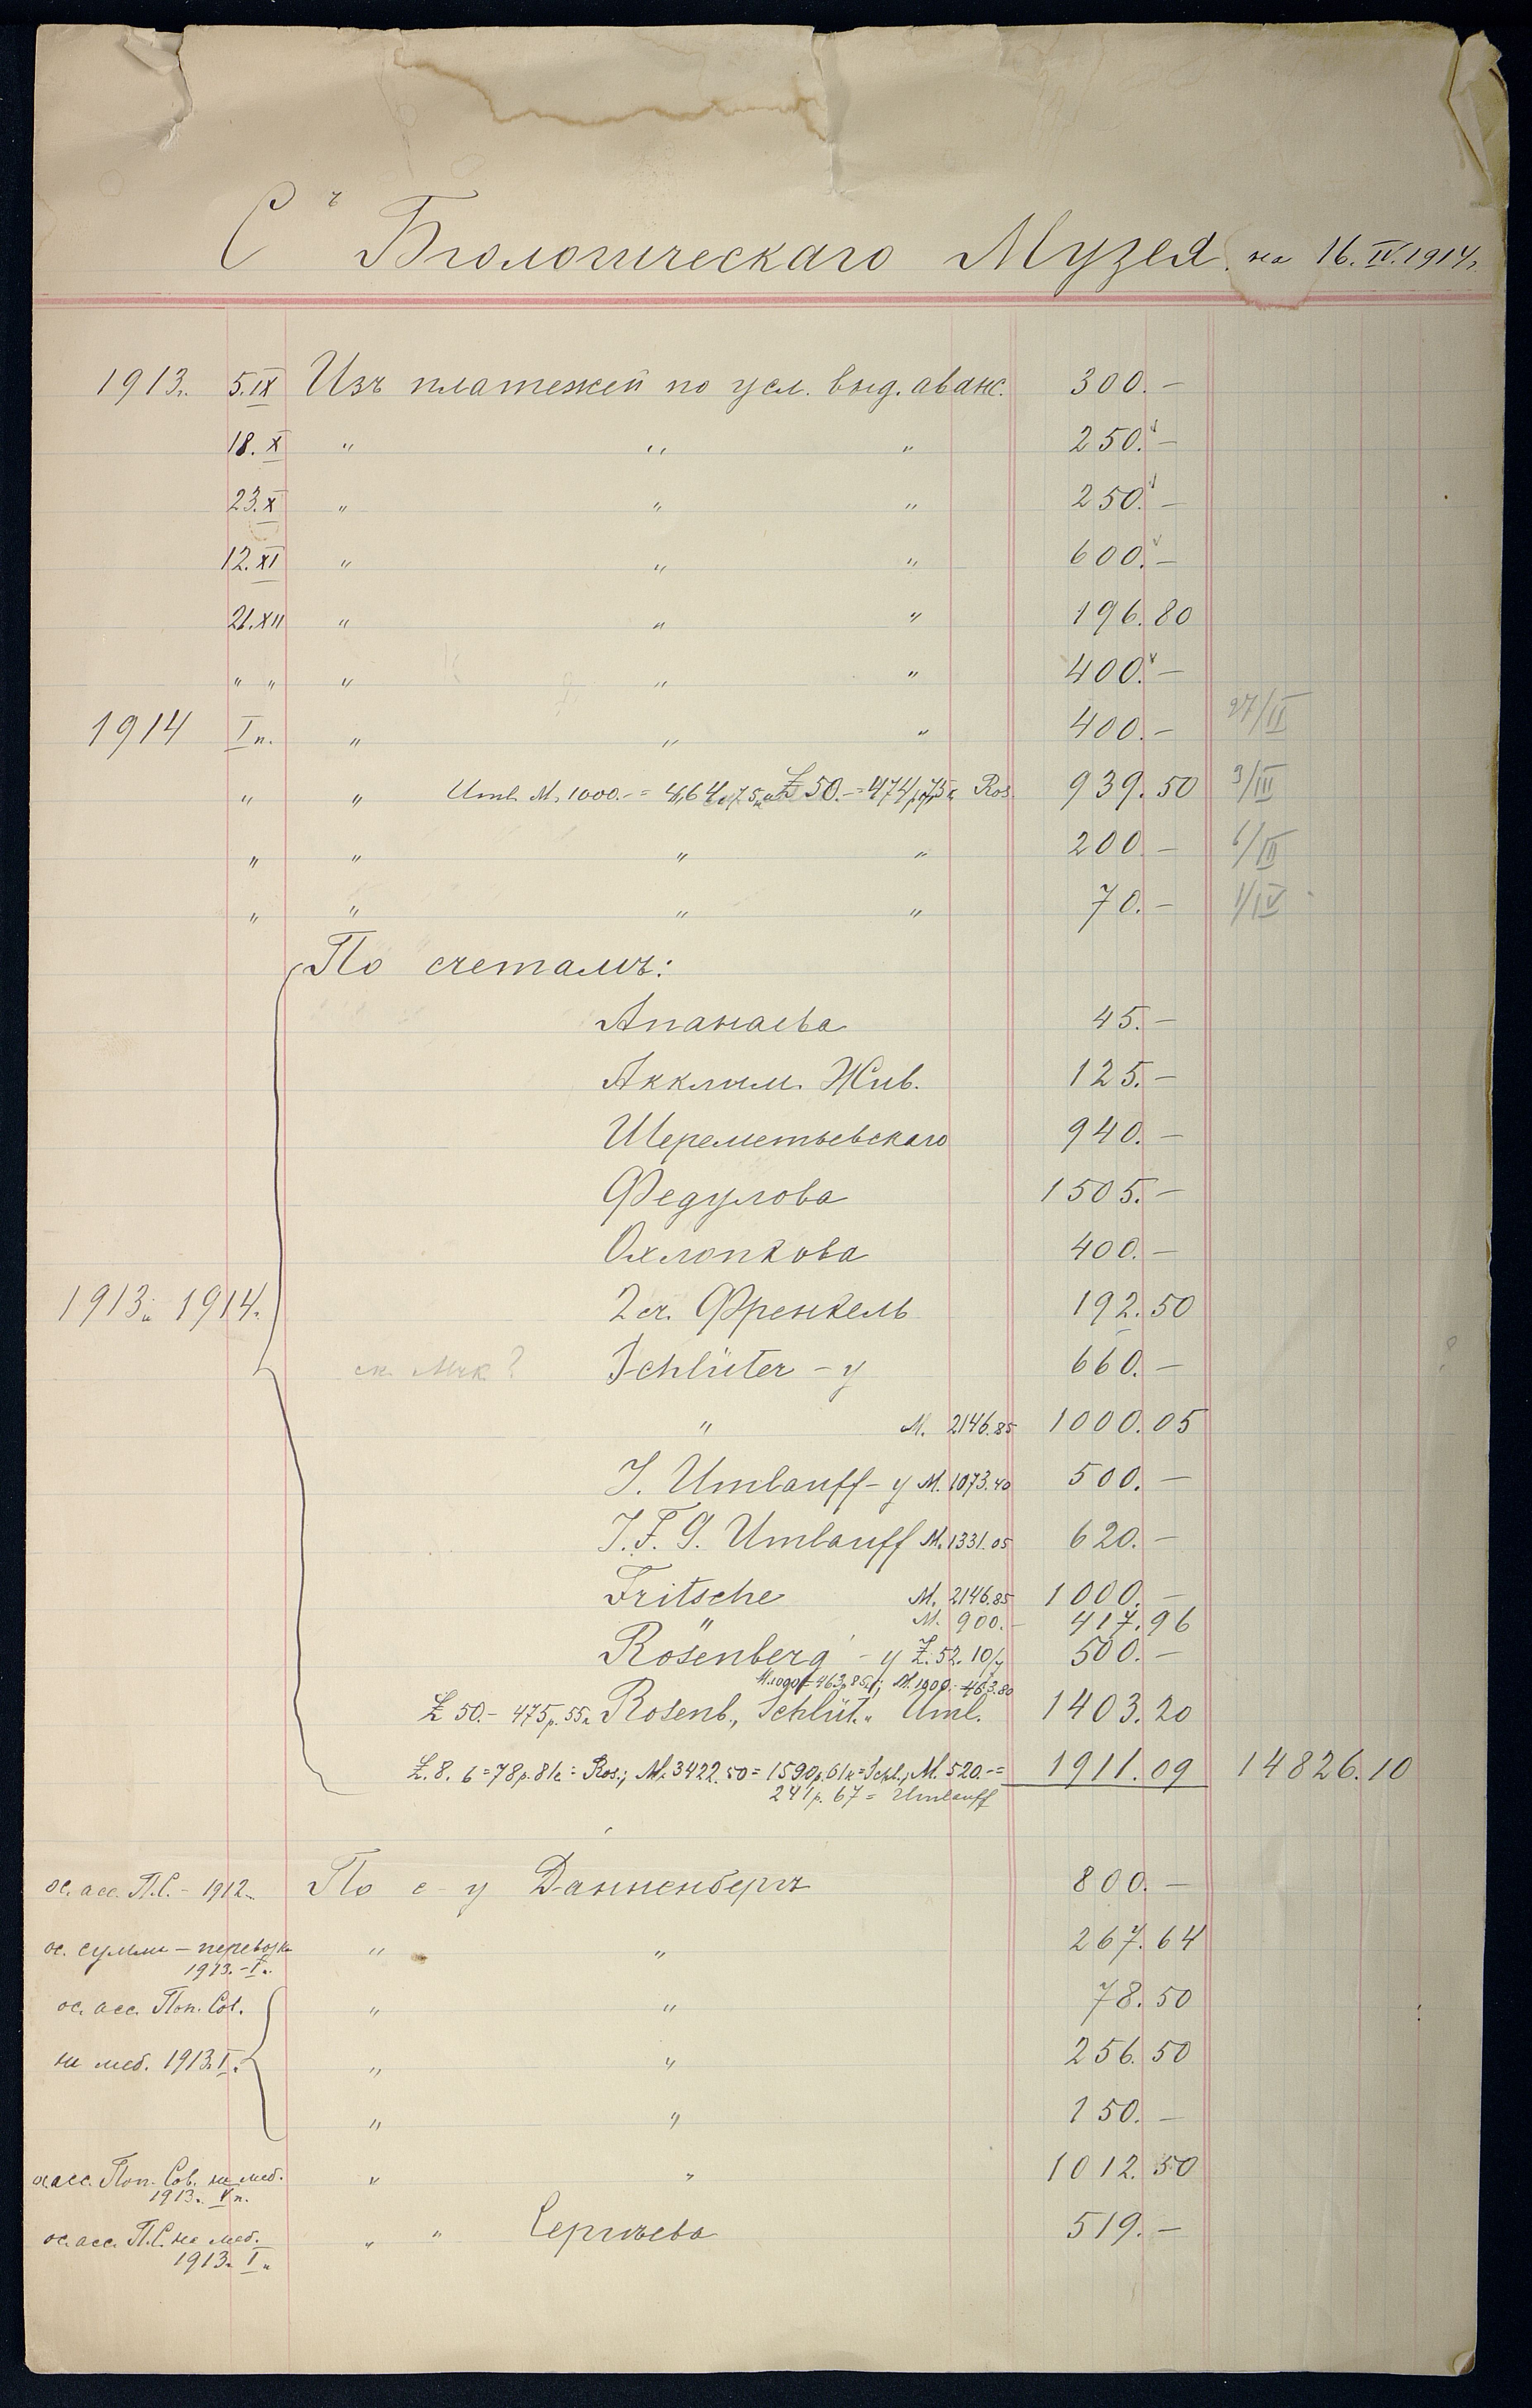 Съ Бiологическаго Музея на 16.IV.1914г.
1913г. 5.IX Изъ платежей по усл. выд. аванс. 300.—
18.X " " " 250.—
23.X " " " 250.—
12.XI " " " 600.—
21.XII " " " 196.80
" " " " " 400.—
1914 I п. " " " 400.— 27/II
" " Uml. M. 1000.— = 464р.75к. £ 50.— = 474р.75к. Ros. 939.50 3/III
" " " " 200.— 6/III
" " " " 70.— 1/IV
По счетамъ:
Ананаева 45.—
Акклим. Жив. 125.—
Шереметьевскаго 940.—
Федулова 1505.—
Охлопкова 400.—
1913 и 1914г. 2 сч. Френкель 192.50
Schlüter - у 660.—
" М. 2146.85 1000.05
J. Umlauff - у М. 1073.40 500.—
J. F. G. Umlauff М. 1331.05 620.—
Fritsche М. 2146.85 1000.—
" М. 900.— 417.96
Rosenberg - у £. 52. 10/ 500.—
М. 1000 = 463р.85к.; М. 1000.— 463.80
£ 50.— 475р.55к. Rosenb., Schlüt. и Uml. 1403.20
£. 8. 6 = 78р.81к = Ros.; М. 3422.50 = 1590р.61к = Schl.; М. 520.— = 1911.09 14826.10
241р.67 = Umlauff
ос. асс. П.С. - 1912г. По с - у Данненбергъ 800.—
ос. суммы — перевозка " " 267.64
1913.-I п.
ос. асс. Поп. Сов. " " 78.50
на меб. 1913.I п. " " 256.50
" " 150.—
ос. асс. Поп. Сов. на меб. " " 1012.50
1913г. V п.
ос. асс. П.С. на меб. " " Сергѣева 519.—
1913г. I п.